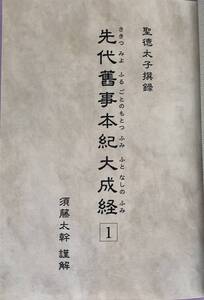 聖徳太子撰録
さきつ みよ ふる ことのもとつ ふみ ふと なしの ふみ
先代舊事本紀大成経 1
須藤太幹 謹解